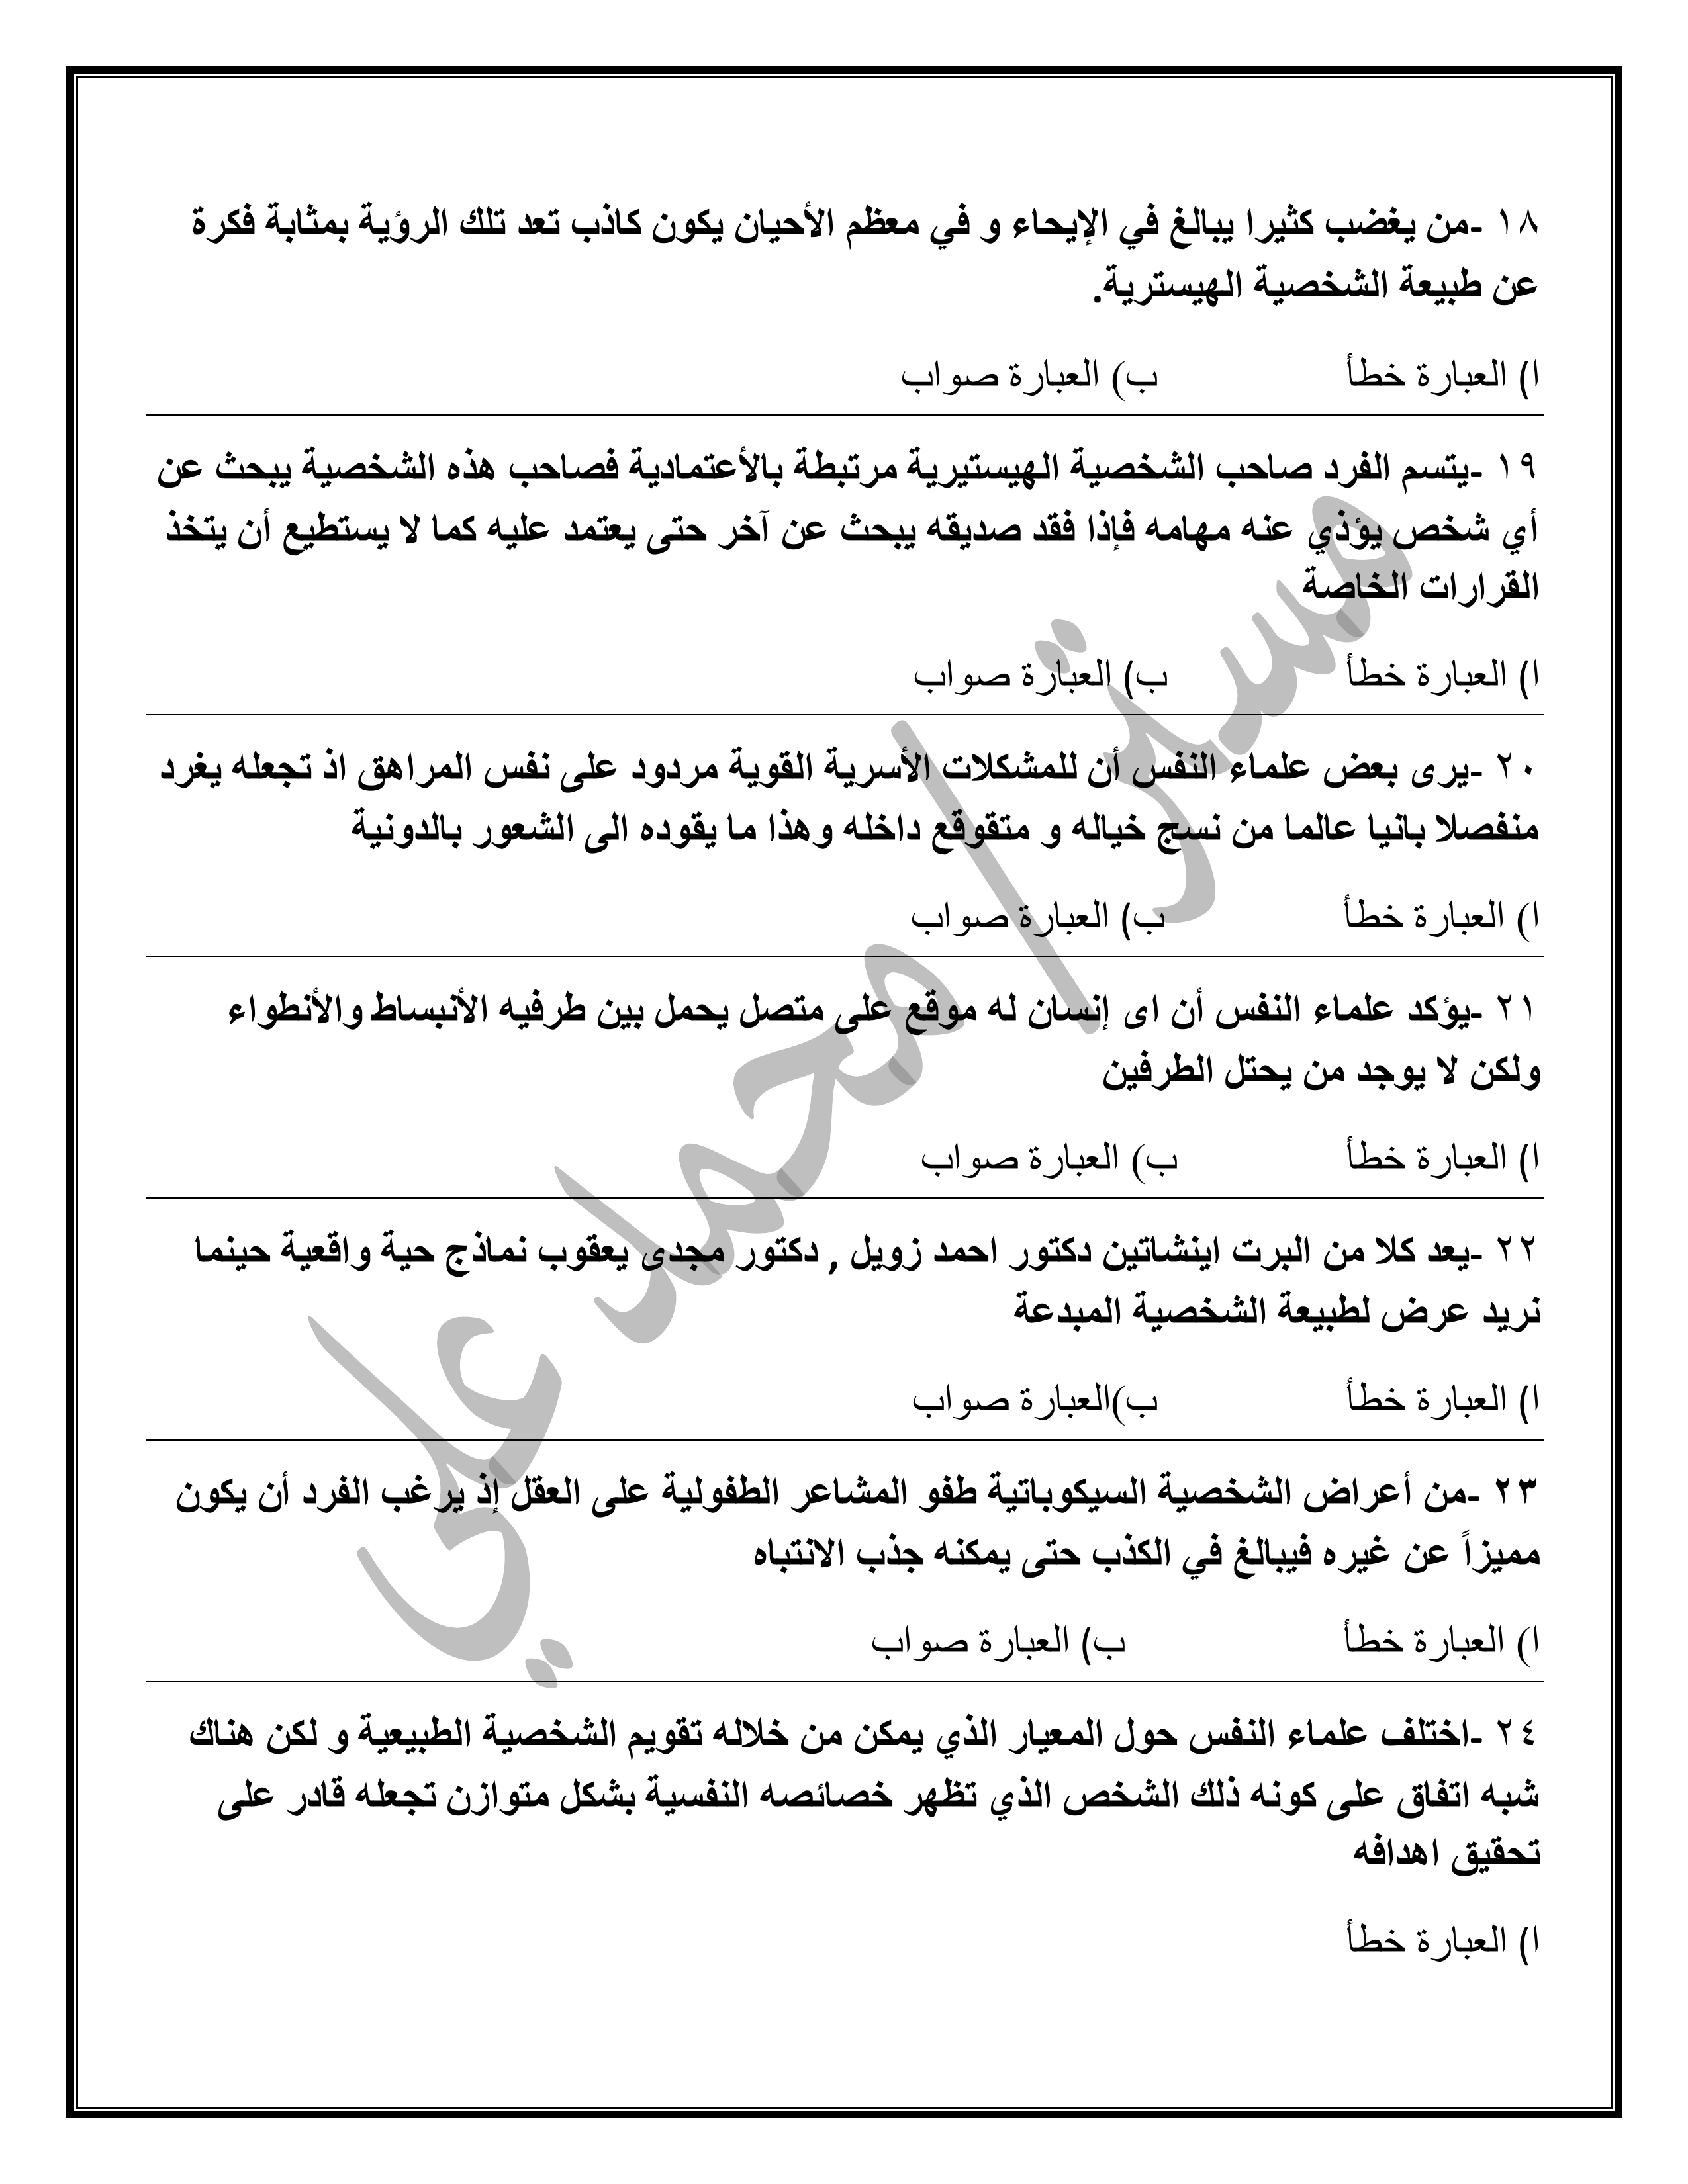 ١٨ -من يغضب كثيرا يبالغ في الإيحاء و في معظم الأحيان يكون كاذب تعد تلك الرؤية بمثابة فكرة
عن طبيعة الشخصية الهيسترية.
ا) العبارة خطأ ب) العبارة صواب
١٩ -يتسم الفرد صاحب الشخصية الهيستيرية مرتبطة بالأعتمادية فصاحب هذه الشخصية يبحث عن
أي شخص يؤذي عنه مهامه فإذا فقد صديقه يبحث عن آخر حتى يعتمد عليه كما لا يستطيع أن يتخذ
القرارات الخاصة
ا) العبارة خطأ ب) العبارة صواب
٢٠ -يرى بعض علماء النفس أن للمشكلات الأسرية القوية مردود على نفس المراهق اذ تجعله يغرد
منفصلا بانيا عالما من نسج خياله و متقوقع داخله وهذا ما يقوده الى الشعور بالدونية
ا) العبارة خطأ ب) العبارة صواب
٢١ -يؤكد علماء النفس أن اى إنسان له موقع على متصل يحمل بين طرفيه الأنبساط والأنطواء
ولكن لا يوجد من يحتل الطرفين
ا) العبارة خطأ ب) العبارة صواب
٢٢ -يعد كلا من البرت اينشاتين دكتور احمد زويل , دكتور مجدى يعقوب نماذج حية واقعية حينما
نريد عرض لطبيعة الشخصية المبدعة
ا) العبارة خطأ ب)العبارة صواب
٢٣ -من أعراض الشخصية السيكوباتية طفو المشاعر الطفولية على العقل إذ يرغب الفرد أن يكون
مميزاً عن غيره فيبالغ في الكذب حتى يمكنه جذب الانتباه
ا) العبارة خطأ ب) العبارة صواب
٢٤ -اختلف علماء النفس حول المعيار الذي يمكن من خلاله تقويم الشخصية الطبيعية و لكن هناك
شبه اتفاق على كونه ذلك الشخص الذي تظهر خصائصه النفسية بشكل متوازن تجعله قادر على
تحقيق اهدافه
ا) العبارة خطأ
مستر/محمد علي